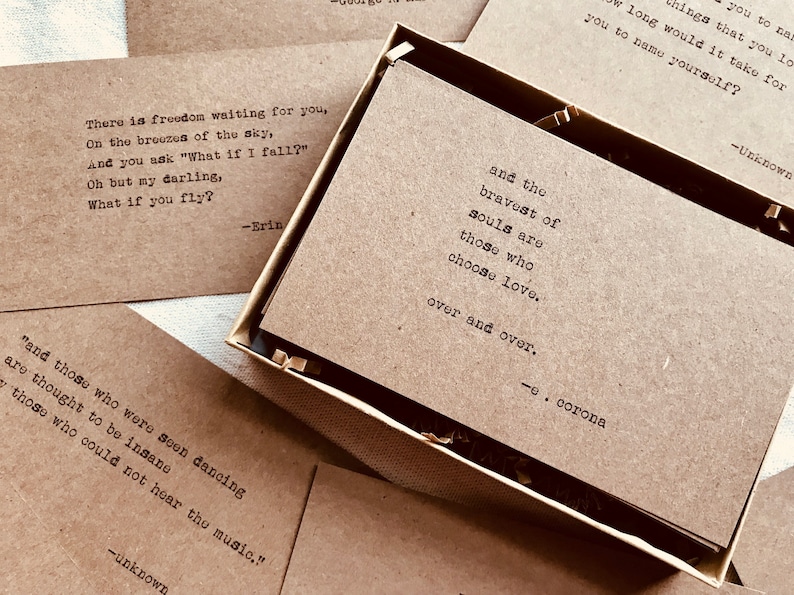 —George
d you to na
ow long would it take for
things that you lo
you to name yourself?
—Unknown
There is freedom waiting for you,
On the breezes of the sky,
And you ask "What if I fall?"
Oh but my darling,
What if you fly?
—Erin
and the
bravest of
souls are
those who
choose love.
over and over.
—e . corona
"and those who were seen dancing
are thought to be insane
y those who could not hear the music."
—unknown